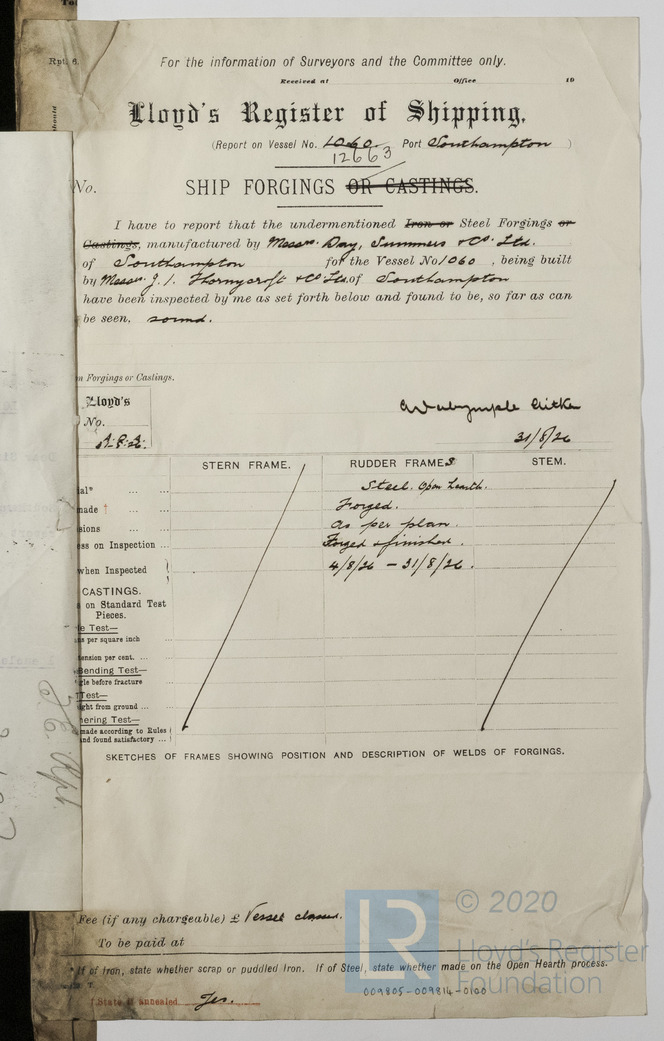 Rpt. 6.
For the information of Surveyors and the Committee only.
Received at Office 19
Lloyd's Register of Shipping.
(Report on Vessel No. 1060 Port Southampton )
12663
No. SHIP FORGINGS OR CASTINGS.
I have to report that the undermentioned Iron or Steel Forgings or
Castings, manufactured by Messrs. Day, Summers & Co. Ltd.
of Southampton for the Vessel No 1060 , being built
by Messrs. J. I. Thornycroft & Co. Ltd. of Southampton
have been inspected by me as set forth below and found to be, so far as can
be seen, sound.
n Forgings or Castings.
Lloyd's
No.
31/8/26
STERN FRAME. RUDDER FRAMES STEM.
ial* ... ... Steel. Open hearth.
made † ... ... Forged.
sions ... ... As per plan.
ess on Inspection ... Forged & finished.
when Inspected 4/8/26 – 31/8/26.
CASTINGS.
s on Standard Test
Pieces.
e Test—
ns per square inch ...
tension per cent. ... ...
Bending Test—
gle before fracture ...
Test—
ght from ground ... ...
nering Test—
made according to Rules
and found satisfactory ...
SKETCHES OF FRAMES SHOWING POSITION AND DESCRIPTION OF WELDS OF FORGINGS.
Fee (if any chargeable) £ Vessel classed.
To be paid at
* If of Iron, state whether scrap or puddled Iron. If of Steel, state whether made on the Open Hearth process.
† State if annealed. Yes.
009805-009814-0100
LR
© 2020
Lloyd's Register
Foundation